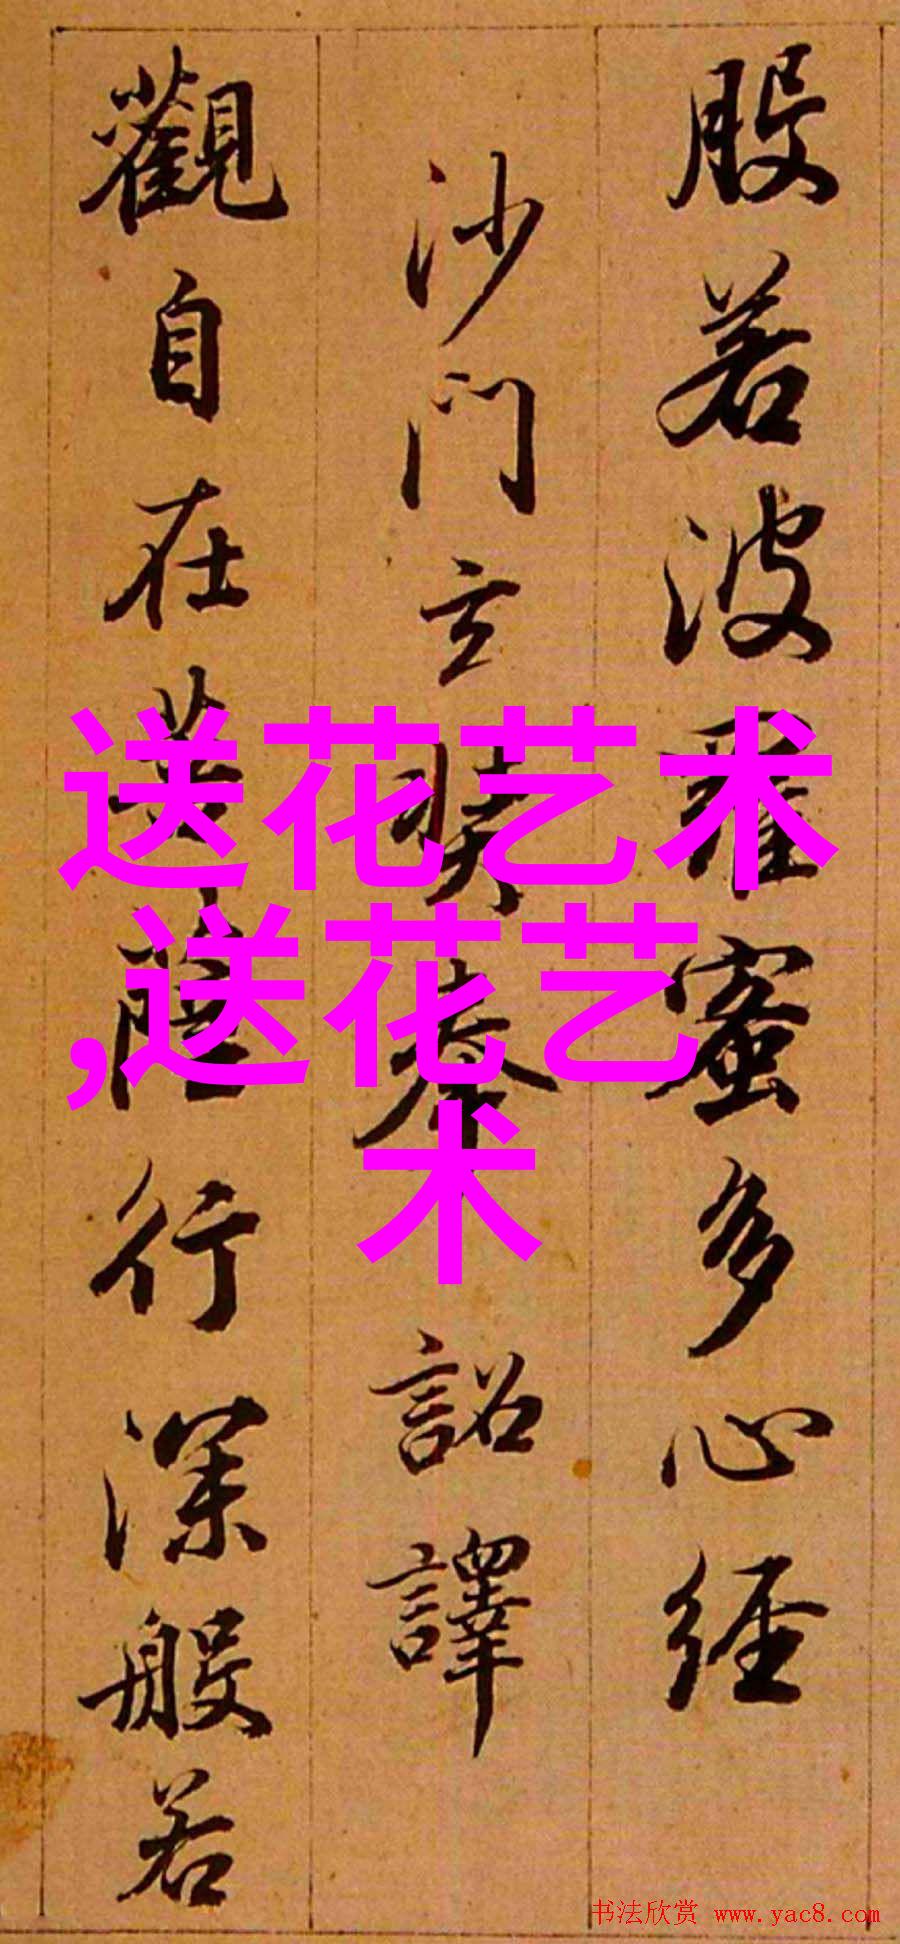 般若波羅蜜多心經
沙門玄奘奉詔譯
觀自在菩薩行深般若
送花艺术
,送花艺
术
书法欣赏 www.yac8.com